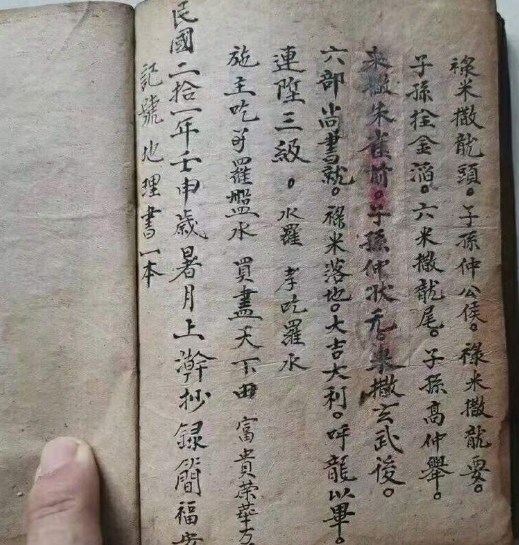 祿米撒龍頭。子孫仲公侯。祿米撒龍要。
子孫拴金滔。六米撒龍尾。子孫高仲舉。
米撒朱雀前。子孫仲狀元。米撒玄武後。
六部尚書就。祿米落地。大吉大利。呼龍以畢。
連陞三級。水羅 孝吃羅水
施主吃羅盤水 買盡天下田 富貴榮華
民國二拾一年壬申歲暑月上澣抄録簡福
記號地理書一本